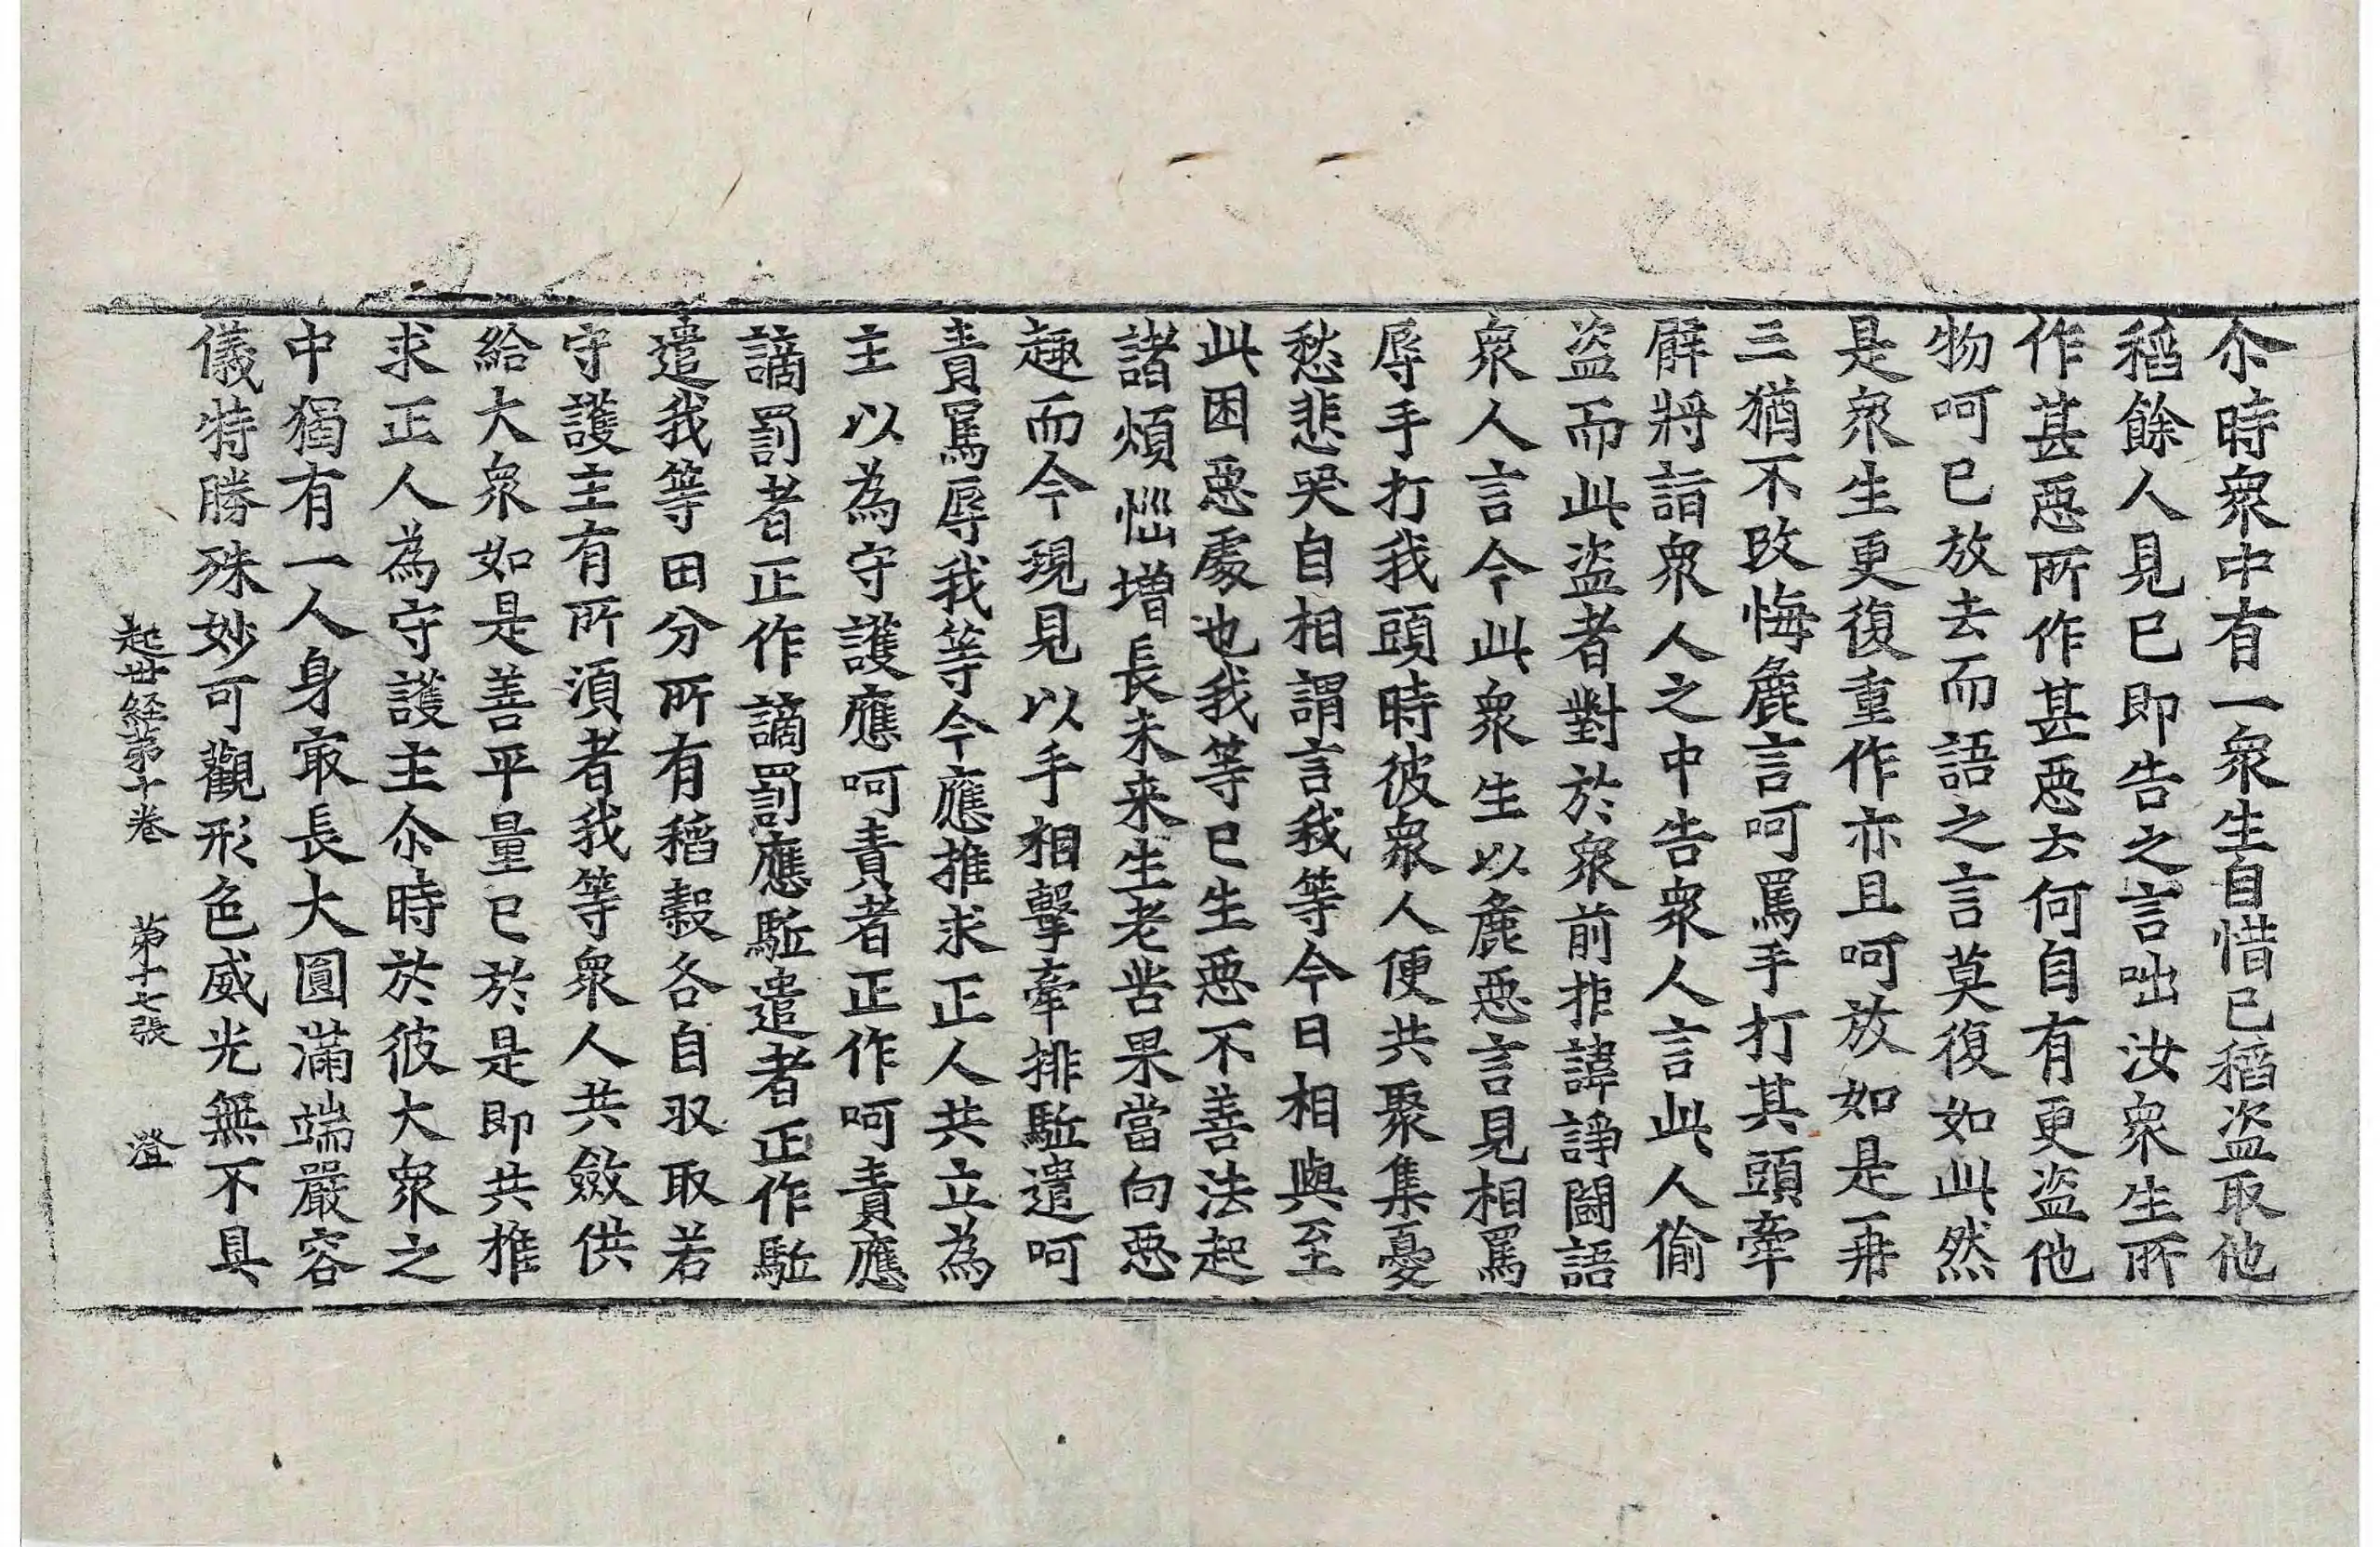 尒時衆中有一衆生自惜已稻盗取他
稻餘人見已即告之言咄汝衆生所
作甚惡所作甚惡云何自有更盗他
物呵已放去而語之言莫復如此然
是衆生更復重作亦且呵放如是再
三猶不改悔麁言呵罵手打其頭牽
臂將詣衆人之中告衆人言此人偷
盗而此盗者對於衆前拒諱諍鬪語
衆人言今此衆生以麁惡言見相罵
辱手打我頭時彼衆人便共聚集憂
愁悲哭自相謂言我等今日相與至
此困惡處也我等已生惡不善法起
諸煩惱增長未来生老苦果當向惡
趣而今現見以手相擊牽排駈遣呵
責罵辱我等今應推求正人共立為
主以為守護應呵責者正作呵責應
謫罰者正作謫罰應駈遣者正作駈
遣我等田分所有稻穀各自収取若
守護主有所湏者我等衆人共斂供
給大衆如是善平量已於是即共推
求正人為守護主尒時於彼大衆之
中獨有一人身㝡長大圓滿端嚴容
儀特勝殊妙可觀形色威光無不具
起世経苐十卷　苐十七張　澄